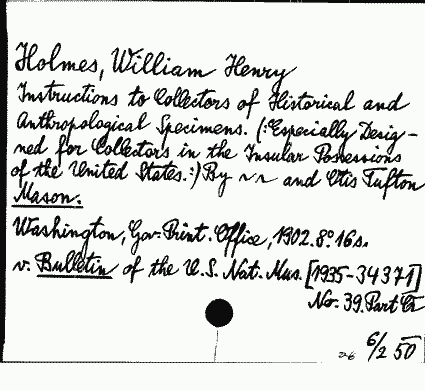 Holmes, William Henry
Instructions to Collectors of Historical and
Anthropological Specimens. (:Especially Desig-
ned for Collectors in the Insular Possessions
of the United States.:) By ~ ~ and Otis Tufton
Mason.
Washington, Gov. Print. Office, 1902. 8:o 16 s.
v. Bulletin of the U.S. Nat. Mus. [1935-34371]
No. 39. Part
6/2 50